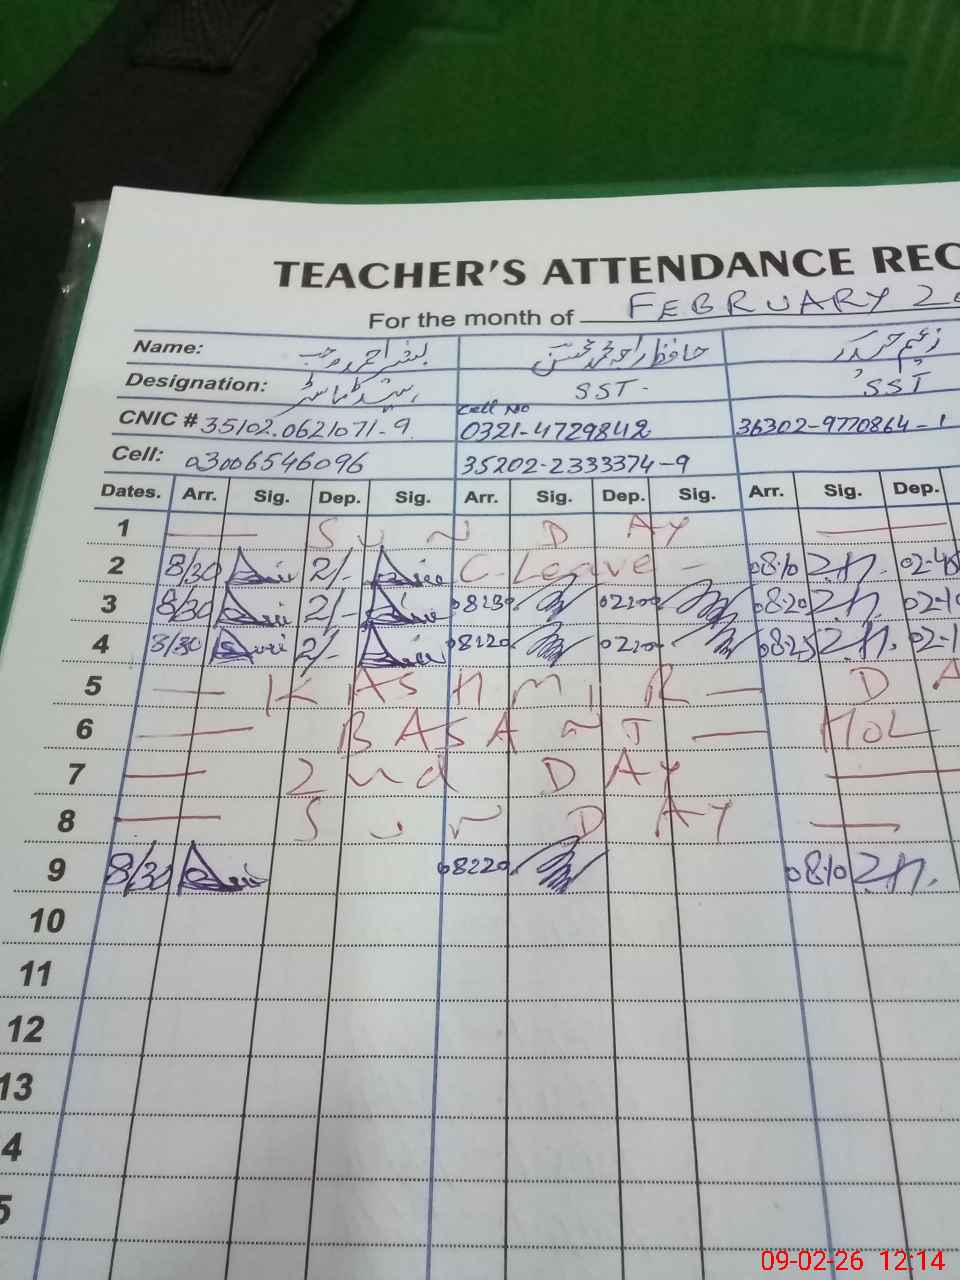 TEACHER'S ATTENDANCE REC
For the month of FEBRUARY 20
Name: بشیر احمد حافظ راجہ محمد محسن زعیم حیدر
Designation: ہیڈ ماسٹر SST - SST
CNIC # 35102.0621071-9 Cell No 0321-4729842 36302-9770864-1
Cell: 03006546096 35202-2333374-9
Dates. Arr. Sig. Dep. Sig. Arr. Sig. Dep. Sig. Arr. Sig. Dep.
1 — SUNDAY —
2 8/30 2/- C-Leave - 08:10 02-45
3 8/30 2/- 08:30 02:00 08:20 02-10
4 8/30 2/- 08:20 02:00 08:25 02-1
5 — KASHMIR — DA
6 — BASANT — HOL
7 — 2nd DAY —
8 — SUNDAY —
9 8/30 08:20 08:10
10
11
12
13
4
5
09-02-26 12:14